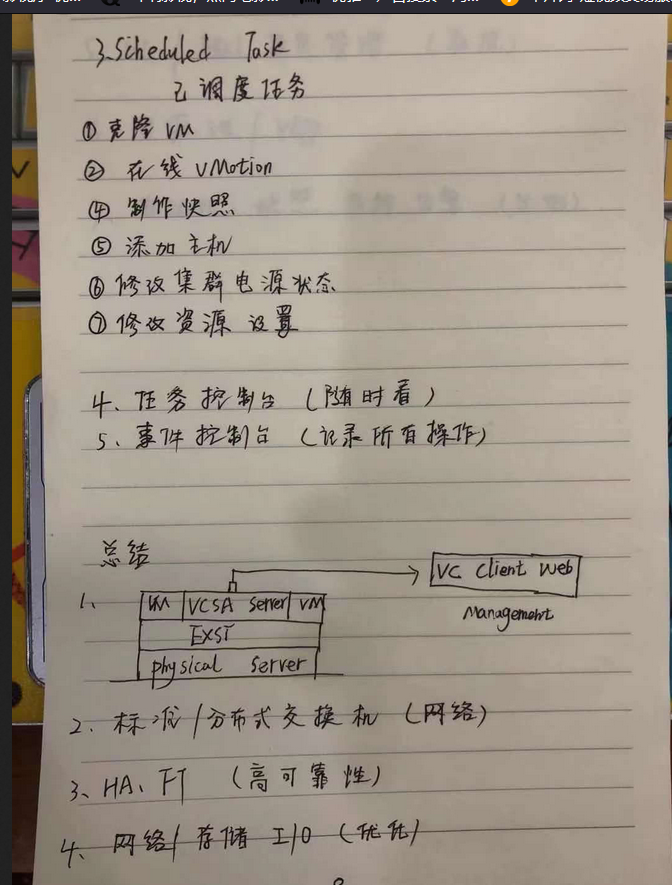 3.Scheduled Task
已调度任务
① 克隆 VM
② 在线 vMotion
④ 制作快照
⑤ 添加主机
⑥ 修改集群电源状态
⑦ 修改资源 设置
4、任务控制台 (随时看)
5、事件控制台 (记录所有操作)
总结
VC Client Web
Management
1、
VM VCSA Server VM
EXSI
physical Server
2、标准/分布式交换机 (网络)
3、HA、FT (高可靠性)
4、网络/存储 I/O (优化)